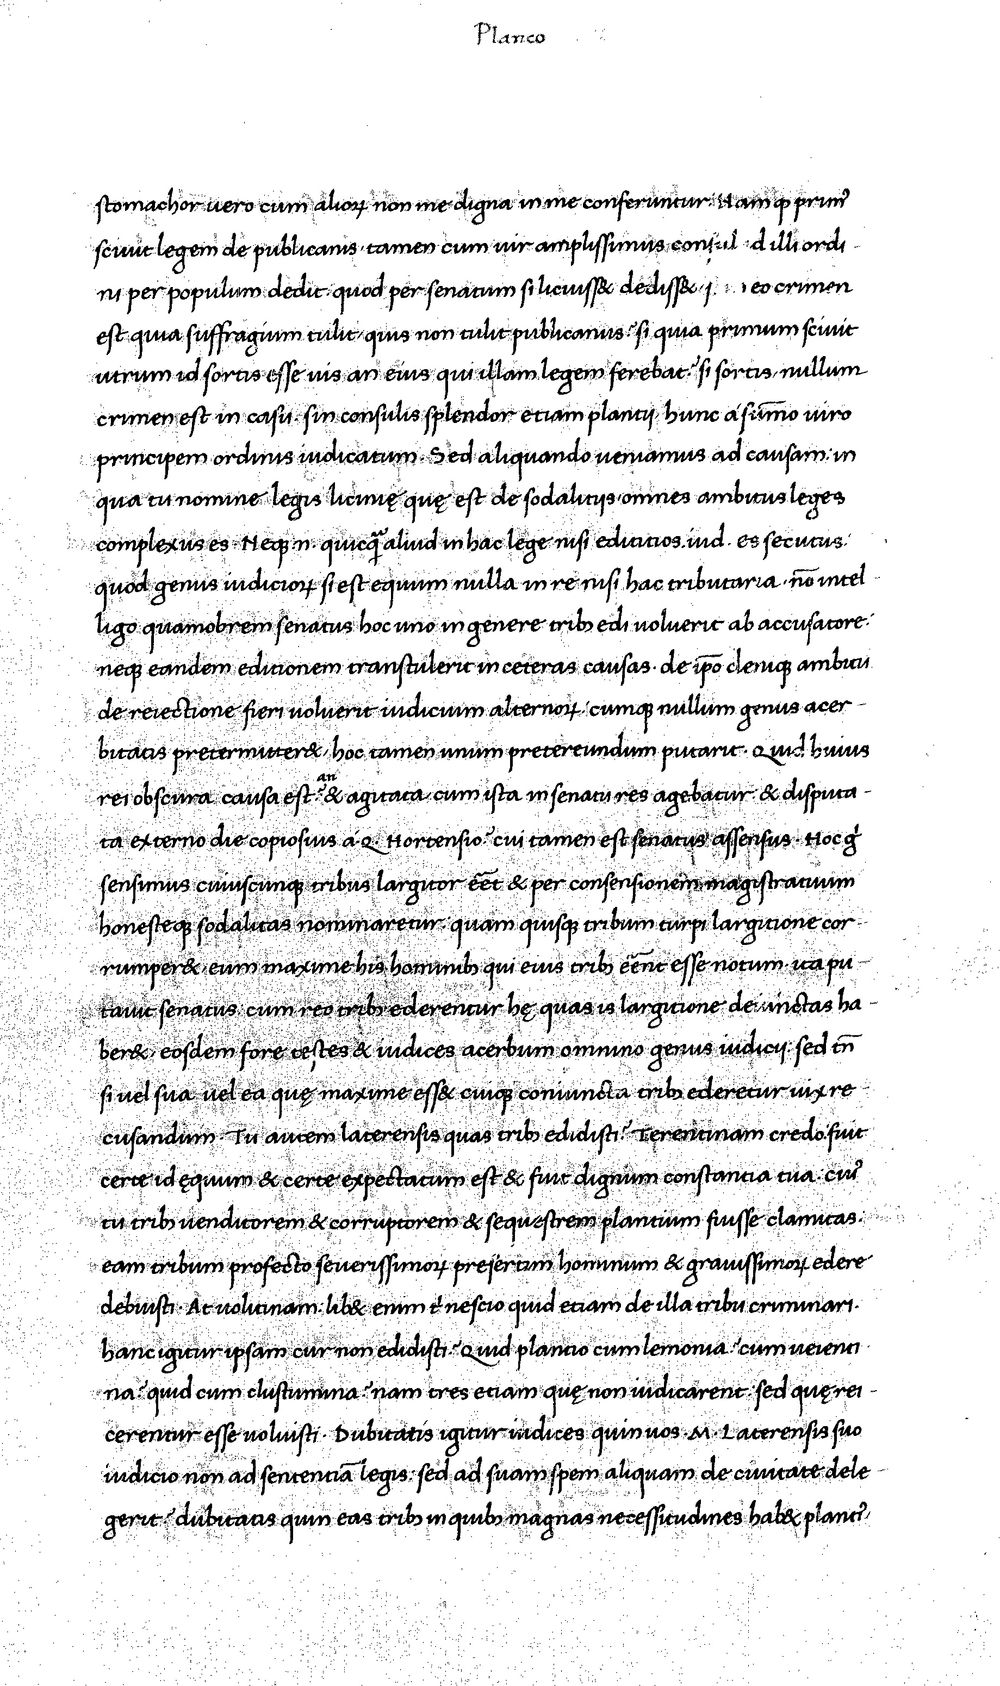 Planco
stomachor uero cum alioꝝ non me digna in me conferuntur. Nam ꝙ primꝰ
sciuit legem de publicanis tamen cum uir amplissimus consul illi ordi-
ni per populum dedit quod per senatum si licuiss& dediss& eo crimen
est quia suffragium tulit quis non tulit publicanus? si quia primum sciuit
utrum id sortis esse uis an eius qui illam legem ferebat? si sortis, nullum
crimen est in casu. sin consulis splendor etiam plancij hunc á sūmo uiro
principem ordinis iudicatum. Sed aliquando ueniamus ad causam: in
qua tu nomine legis licinię quę est de sodalitijs omnes ambitus leges
complexus es. Neqꝫ .n. quicq̄ aliud in hac lege nisi edititios iud. es secutus:
quod genus iudicioꝝ si est equum nulla in re nisi hac tributaria. nō intel
ligo quamobrem senatus hoc uno in genere tribꝫ edi uoluerit ab accusatore:
neqꝫ eandem editionem transtulerit in ceteras causas. de ip̄o deniqꝫ ambitu
de reiectione fieri uoluerit iudicium alternoꝝ: cumqꝫ nullum genus acer-
bitatis pretermitter&, hoc tamen unum pretereundum putarit. Quid huius
rei obscura causa est? an & agitata cum ista in senatu res agebatur & disputa-
ta externo die copiosius á Q. Hortensio? cui tamen est senatus assensus. Hoc g̊
sensimus cuiuscunqꝫ tribus largitor eēt & per consensionem magistratuum
honesteqꝫ sodalitas nominaretur: quam quisqꝫ tribum turpi largitione cor-
rumper& eum maxime his hominibꝫ qui eius tribꝫ eēnt esse notum. ita pu-
tauit senatus. cum reo tribꝫ ederentur hę quas is largitione deuinctas ha-
ber&, eosdem fore testes & iudices acerbum omnino genus iudicij: sed tn̄
si uel sua uel ea quę maxime ess& cuiqꝫ coniuncta tribꝫ ederetur uix re-
cusandum. Tu autem laterensis quas tribꝫ edidisti? Terentinam credo. fuit
certe id ęquum & certe expectatum est & fuit dignum constantia tua. cuiꝰ
tu tribꝫ uenditorem & corruptorem & sequestrem plantium fuisse clamitas:
eam tribum profecto seuerissimoꝝ presertim hominum & grauissimoꝝ edere
debuisti. At uoltinam. lib& enim t̄ nescio quid etiam de illa tribu criminari.
hanc igitur ipsam cur non edidisti? Quid plantio cum lemonia? cum ueienti
na? quid cum clustumina? nam tres etiam quę non iudicarent: sed quę rei-
cerentur esse uoluisti. Dubitatis igitur iudices quin uos .M. Laterensis suo
iudicio non ad sententiā legis: sed ad suam spem aliquam de ciuitate dele-
gerit? dubitatis quin eas tribꝫ in quibꝫ magnas necessitudines hab& plantiꝰ,